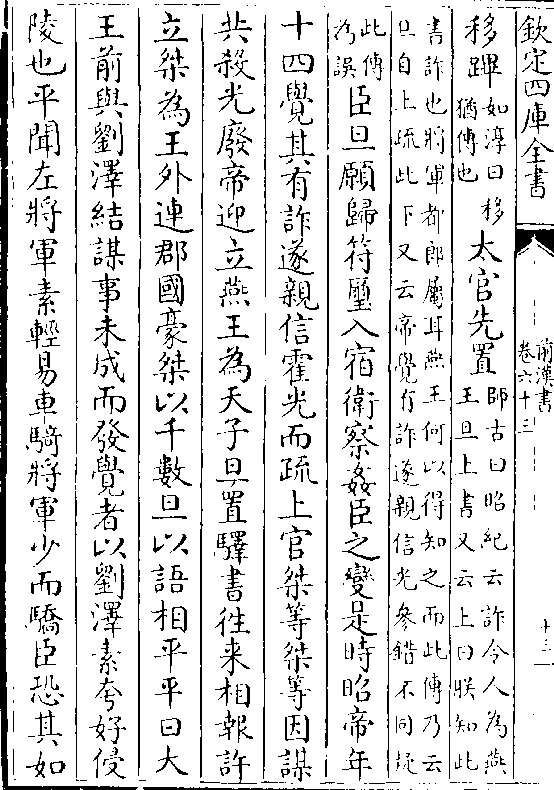 欽定四庫全書
前漢書
卷六十三
十三
移蹕如淳曰移
猶傳也太官先置師古曰昭紀云詐令人為燕
王旦上書又云上曰朕知此
書詐也將軍都郎屬耳燕王何以得知之而此傳乃云
旦自上疏此下又云帝覺有詐遂親信光參錯不同疑
此傳
為誤臣旦願歸符璽入宿衛察姦臣之變是時昭帝年
十四覺其有詐遂親信霍光而疏上官桀等桀等因謀
共殺光廢帝迎立燕王為天子旦置驛書往来相報許
立桀為王外連郡國豪桀以千數旦以語相平平曰大
王前與劉澤結謀事未成而發覺者以劉澤素夸好侵
陵也平聞左將軍素輕易車騎將軍少而驕臣恐其如